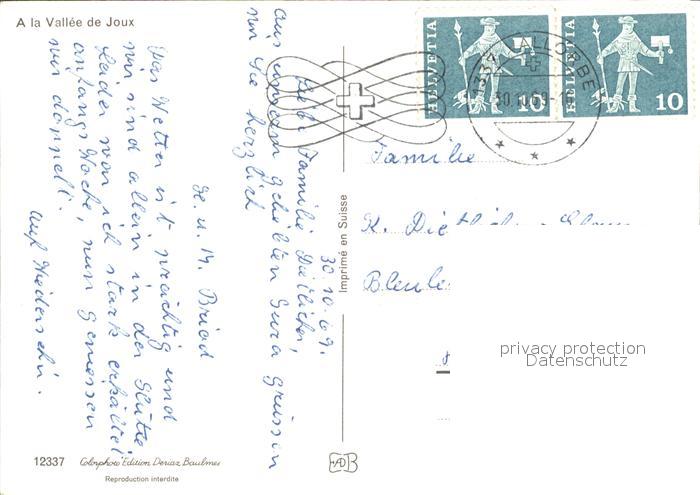 A la Vallée de Joux
HELVETIA 10
HELVETIA 10
VALLORBE
30.10.69
30.10.69.
Liebe Familie
aus unserem geliebten Jura grüssen
wir Sie herzlich
H. u. M. Briod
Das Wetter ist prächtig und
wir sind allein in der Hütte
Leider war ich stark erkältet
anfangs Woche, nun geniessen
wir doppelt.
Auf Wiedersehn.
Familie
K.
Imprimé en Suisse
privacy protection
Datenschutz
12337 Colorphoto Edition Deriaz Baulmes
Reproduction interdite